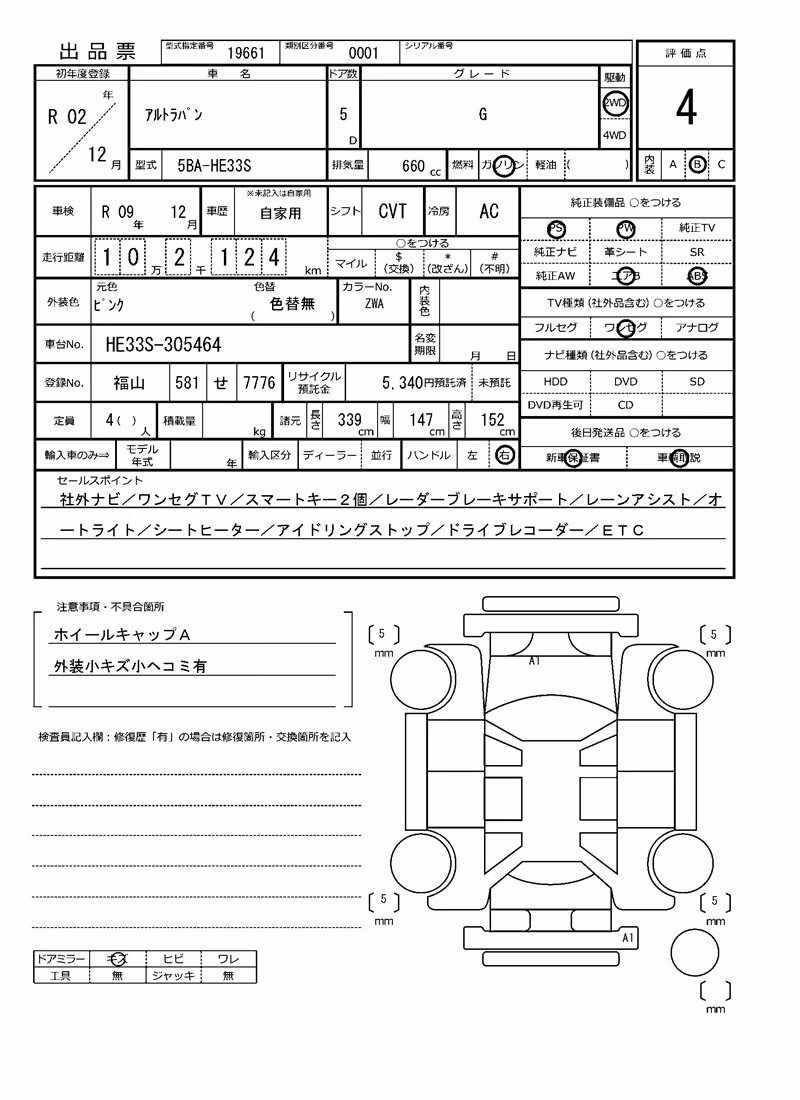 出品票 型式指定番号 19661 類別区分番号 0001 シリアル番号
評価点
4
内装 A B C
初年度登録 車名 ドア数 グレード 駆動
R 02 年 ｱﾙﾄﾗﾊﾟﾝ 5 D G 2WD
4WD
12 月 型式 5BA-HE33S 排気量 660 cc 燃料 ガソリン 軽油 ( )
車検 R 09 年 12 月 車歴 ※未記入は自家用 自家用 シフト CVT 冷房 AC
走行距離 1 0 万 2 千 1 2 4 km ○をつける
マイル $ (交換) * (改ざん) # (不明)
外装色 元色 ﾋﾟﾝｸ 色替 ( 色替無 ) カラーNo. ZWA 内装色
車台No. HE33S-305464 名変期限 月 日
登録No. 福山 581 せ 7776 リサイクル預託金 5,340 円預託済 未預託
定員 4 ( ) 人 積載量 kg 諸元 長さ 339 cm 幅 147 cm 高さ 152 cm
輸入車のみ⇒ モデル年式 年 輸入区分 ディーラー 並行 ハンドル 左 右
純正装備品 ○をつける
PS PW 純正TV
純正ナビ 革シート SR
純正AW エアB ABS
TV種類 (社外品含む) ○をつける
フルセグ ワンセグ アナログ
ナビ種類 (社外品含む) ○をつける
HDD DVD SD
DVD再生可 CD
後日発送品 ○をつける
新車保証書 車輌取説
セールスポイント
社外ナビ／ワンセグＴＶ／スマートキー２個／レーダーブレーキサポート／レーンアシスト／オ
ートライト／シートヒーター／アイドリングストップ／ドライブレコーダー／ＥＴＣ
注意事項・不具合箇所
ホイールキャップＡ
外装小キズ小ヘコミ有
検査員記入欄：修復歴「有」の場合は修復箇所・交換箇所を記入
ドアミラー キズ ヒビ ワレ
工具 無 ジャッキ 無
5 mm
5 mm
A1
5 mm
5 mm
A1
mm